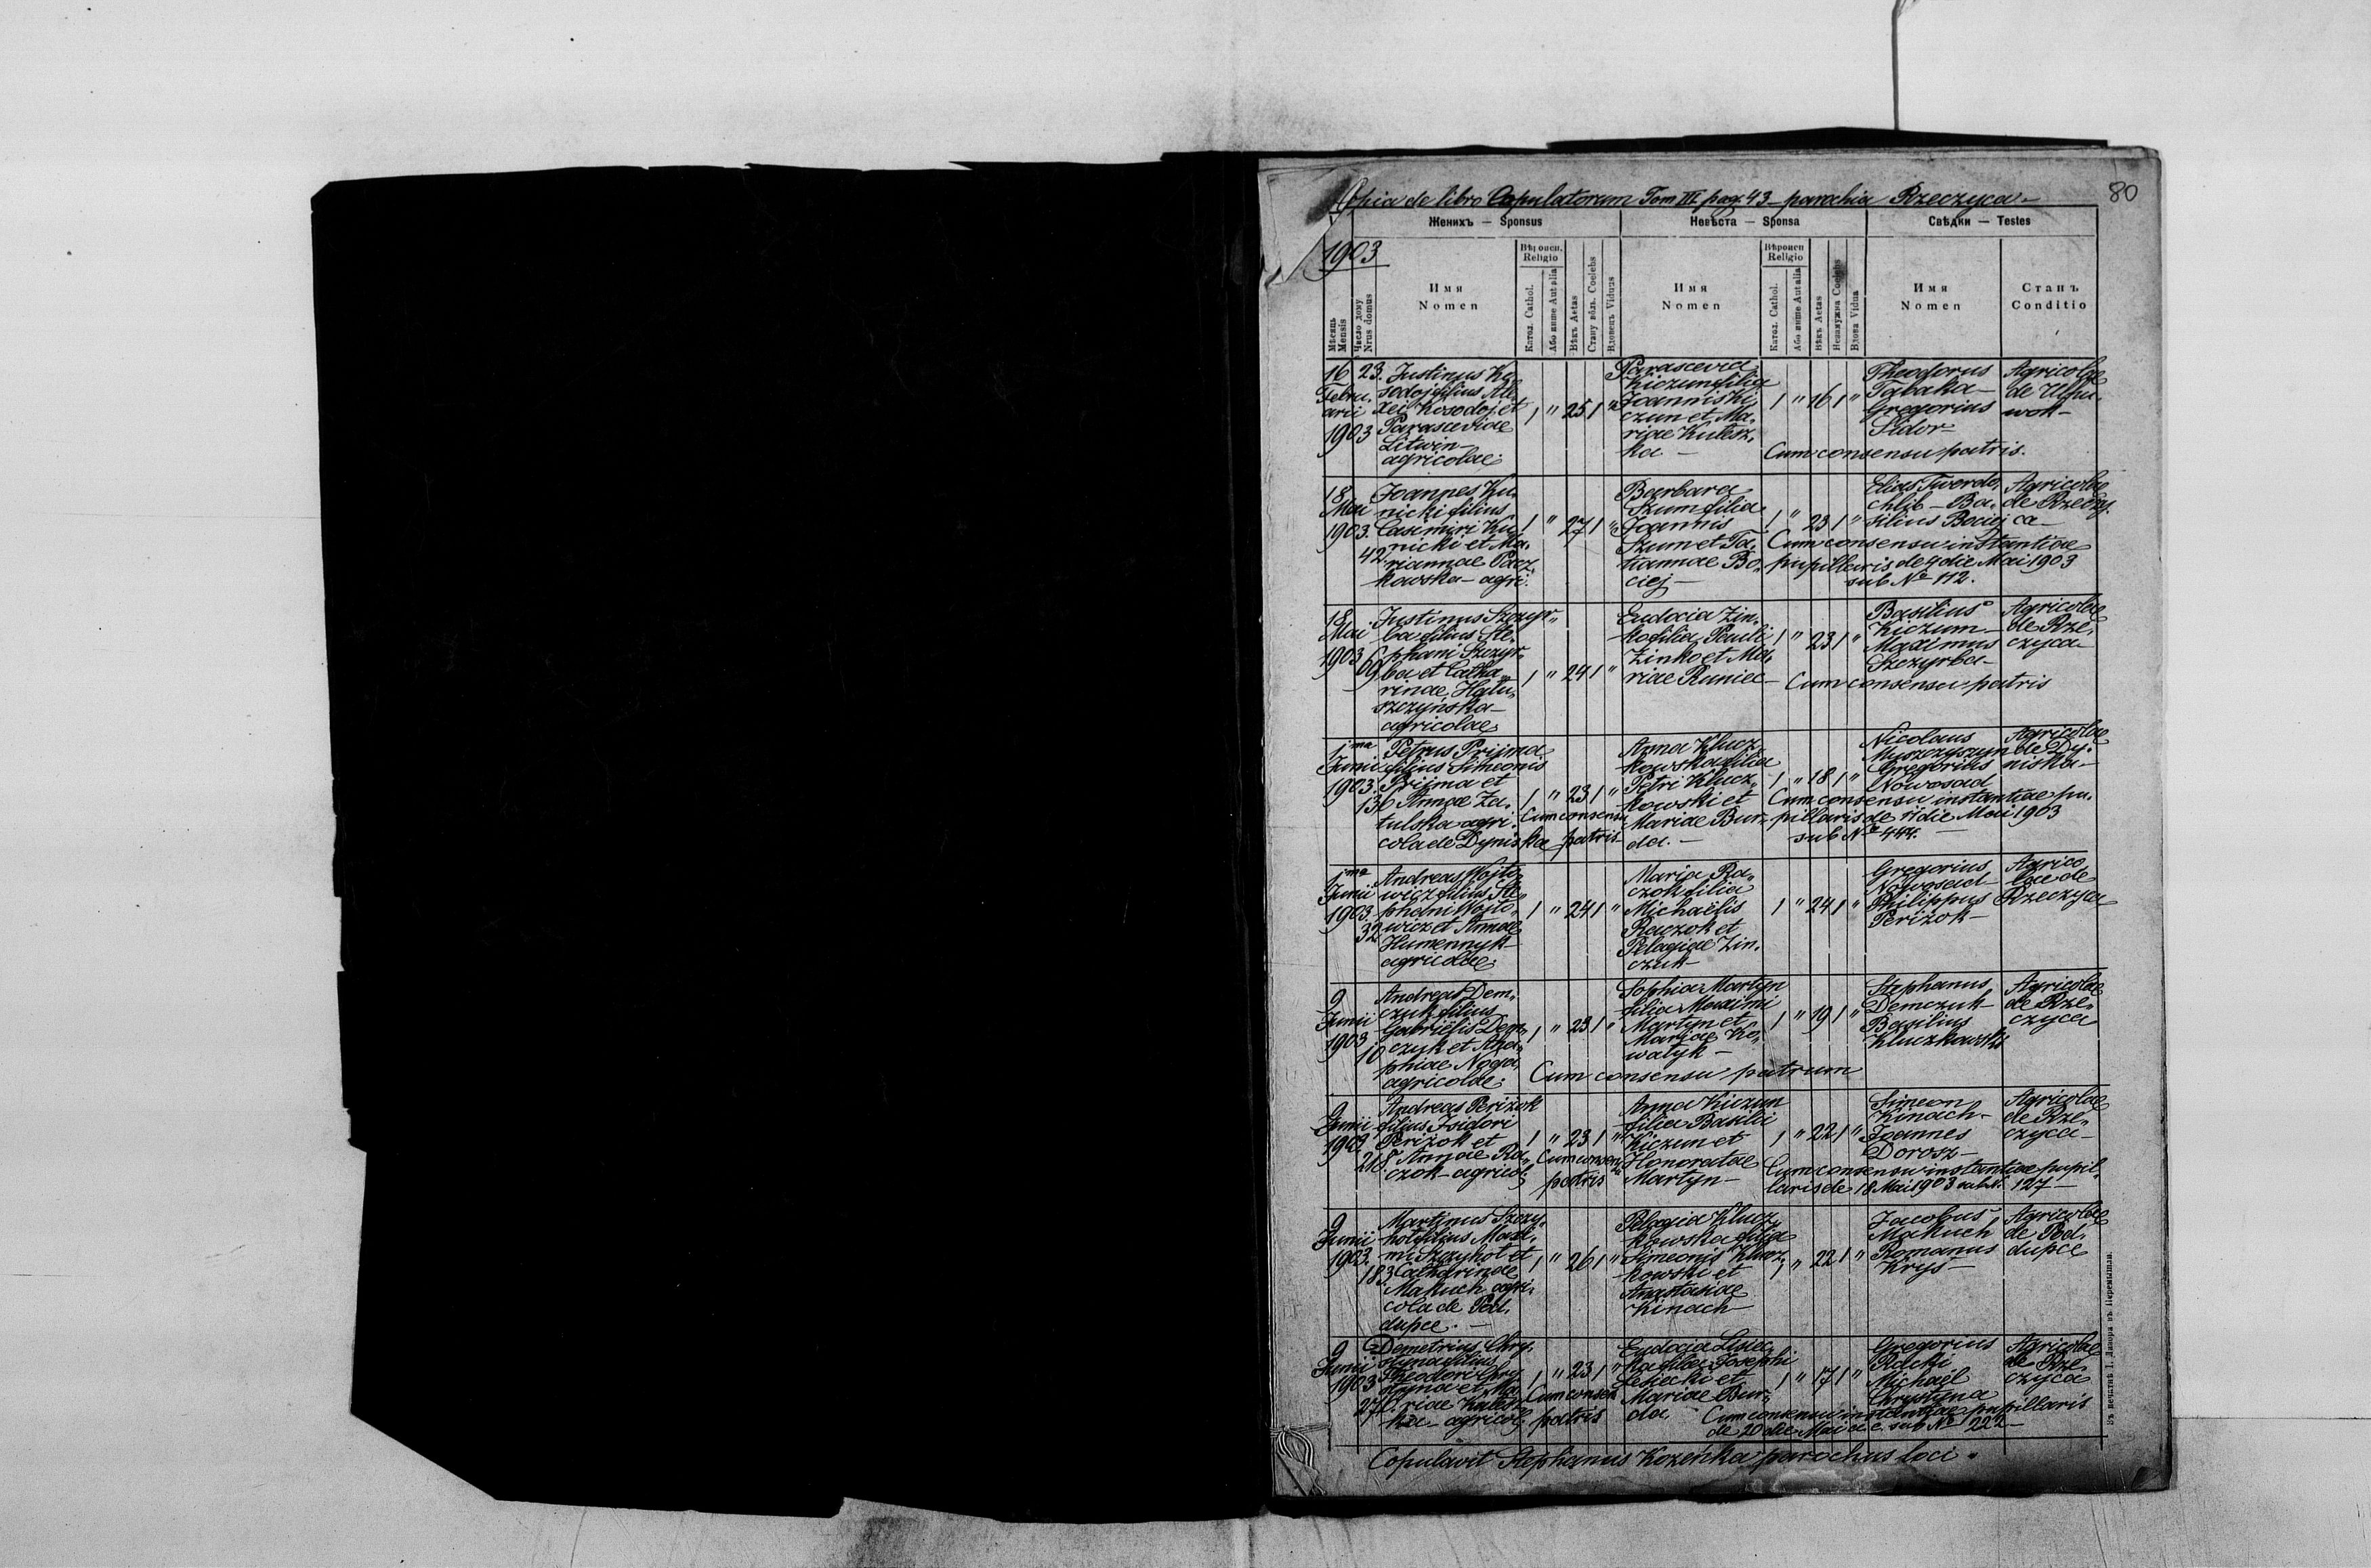 Copia de libro Copulatorum Tom III pag. 43 parochia Rzeczyca
80
Женихъ — Sponsus
Невѣста — Sponsa
Свѣдки — Testes
1903
Мѣсяць Mensis
Число дому Nrus domus
Имя Nomen
Вѣроисп. Religio
Катол. Cathol.
Або инше Aut alia
Вѣкъ Aetas
Стану вôльн. Coelebs
Вдовець Viduus
Имя Nomen
Вѣроисп Religio
Катол. Cathol.
Або инше Aut alia
Вѣкъ Aetas
Незамужна Coelebs
Вдова Vidua
Имя Nomen
Станъ Conditio
16 Februarii 1903
23.
Justinus Ko„
sodoj filius Ale„
xei Kosodoj et
Parascevae
Litwin
agricolae
1 „ 25 1 „
Parascevia
Kiczun filia
Joannis Ki„
czun et Ma„
riae Kulesz„
ka —
1 „ 16 1 „
Theodorus
Tabaka —
Gregorius
Sidor —
Agricolae
de Uhnu„
wok —
Cum consensu patris.
18 Mai 1903.
42
Joannes Ku„
nicki filius
Casimiri Ku„
nicki et Ma„
riannae Pacz„
kowska — agri.
1 „ 27 1 „
Barbara
Szum filia
Joannis
Szum et Ta„
tiannae Bo„
ciej —
1 „ 23 1 „
Elias Twordo„
chlib — Ba„
silius Bociej
Agricolae
de Rzeczy„
ca —
Cum consensu instantiae
pupillaris de 9 die Mai 1903
sub No 112.
18 Mai 1903
69
Justinus Szczyr„
ba filius Ste„
phani Szczyr„
ba et Catha„
rinae Hału„
szczyńska —
agricolae
1 „ 24 1 „
Eudocia Zin„
ko filia Pauli
Zinko et Ma„
riae Runiec —
1 „ 23 1 „
Basilius
Kiczum —
Maximus
Szczyrba —
Agricolae
de Rze„
czyca —
Cum consensu patris
1ma Junii 1903.
136
Petrus Prijma
filius Simeonis
Prijma et
Annae Za„
tulska agri„
cola de Dyniska
1 „ 23 1 „
Cum consensu
patris
Anna Klucz„
kowska filia
Petri Klucz„
kowski et
Mariae Bur„
da. —
1 „ 18 1 „
Nicolaus
Muszczyszyn
Gregorius
Nowosad
Agricolae
de Dy„
niska —
Cum consensu instantiae pu„
pillaris de 11 die Mai 1903
sub No 444. —
1ma Junii 1903.
32
Andreas Wojto„
wicz filius Ste„
phani Wojto„
wicz et Annae
Humennyk
agricolae
1 „ 24 1 „
Maria Ra„
czok filia
Michaëlis
Raczok et
Pelagiae Zin„
czuk —
1 „ 24 1 „
Gregorius
Nowosad —
Philippus
Periżok —
Agrico„
lae de
Rzeczyca
9 Junii 1903
10
Andreas Dem„
czuk filius
Gabriëlis Dem„
czyk et Aga„
phiae Noga
agricolae
1 „ 23 1 „
Sophia Martyn
filia Maximi
Martyn et
Mariae Ko„
walyk —
1 „ 19 1 „
Stephanus
Demczuk
Basilius
Kluczkowski
Agricolae
de Rze„
czyca
Cum consensu patrum
9 Junii 1903
218
Andreas Periżok
filius Isidori
Periżok et
Annae Ra„
czok — agricol.
1 „ 23 1 „
Cum consensu
patris
Anna Kiczun
filia Basilii
Kiczun et
Honoratae
Martyn —
1 „ 22 1 „
Simeon
Kinach —
Joannes
Dorosz —
Agricolae
de Rze„
czyca —
Cum consensu instantiae pupil„
laris de 18 Mai 1903 sub N. 127 —
9 Junii 1903.
183
Martinus Szczy„
hot filius Maxi„
mi Szczyhot et
Catharinae
Makuch agri„
cola de Pod„
dupce. —
1 „ 26 1 „
Pelagia Klucz„
kowska filia
Simeonis Klucz„
kowski et
Anastasiae
Kinach
1 „ 22 1 „
Jacobus
Makuch
Romanus
Krys —
Agricolae
de Pod„
dupce
9 Junii 1903
270.
Demetrius Chry„
styna filius
Theodori Chry„
styna et Ma„
riae Kulesz„
ka — agricol.
1 „ 23 1 „
Cum consen
patris
Eudocia Lisiec„
ka filia Josephi
Lesiecki et
Mariae Bur„
da
1 „ 17 1 „
Gregorius
Racki
Michaël
Chrystyna
Agricolae
de Rze„
czyca
Cum consensu instantiae pupillaris
de 20 die Mai a. c. sub No 222 —
Copulavit Stephanus Kozeńka parochus loci
Въ печатнѣ І. Лазора въ Перемышли.